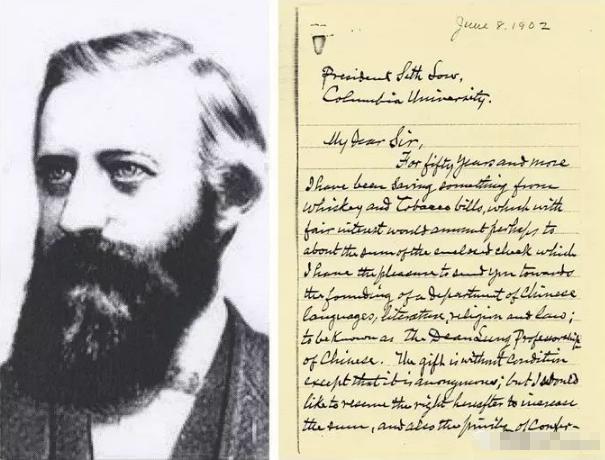 June 8. 1902
President Seth Low,
Columbia University.
My Dear Sir,
For fifty years and more
I have been saving something from
whiskey and Tobacco bills, which with
fair interest would amount perhaps to
about the sum of the enclosed check which
I have the pleasure to send you towards
the founding of a department of Chinese
languages, literature, religion and law;
to be known as the Dean Lung Professorship
of Chinese. The gift is without condition
except that it is anonymous; but I should
like to reserve the right hereafter to increase
the sum, and also the of Confer-